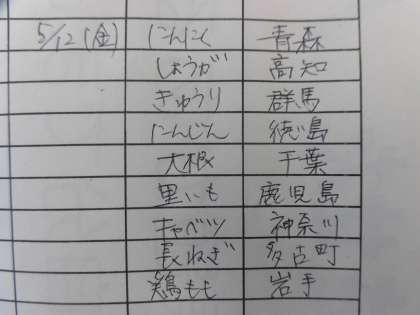 5/12(金) にんにく 青森
しょうが 高知
きゅうり 群馬
にんじん 徳島
大根 千葉
里いも 鹿児島
キャベツ 神奈川
長ねぎ 多古町
鶏もも 岩手